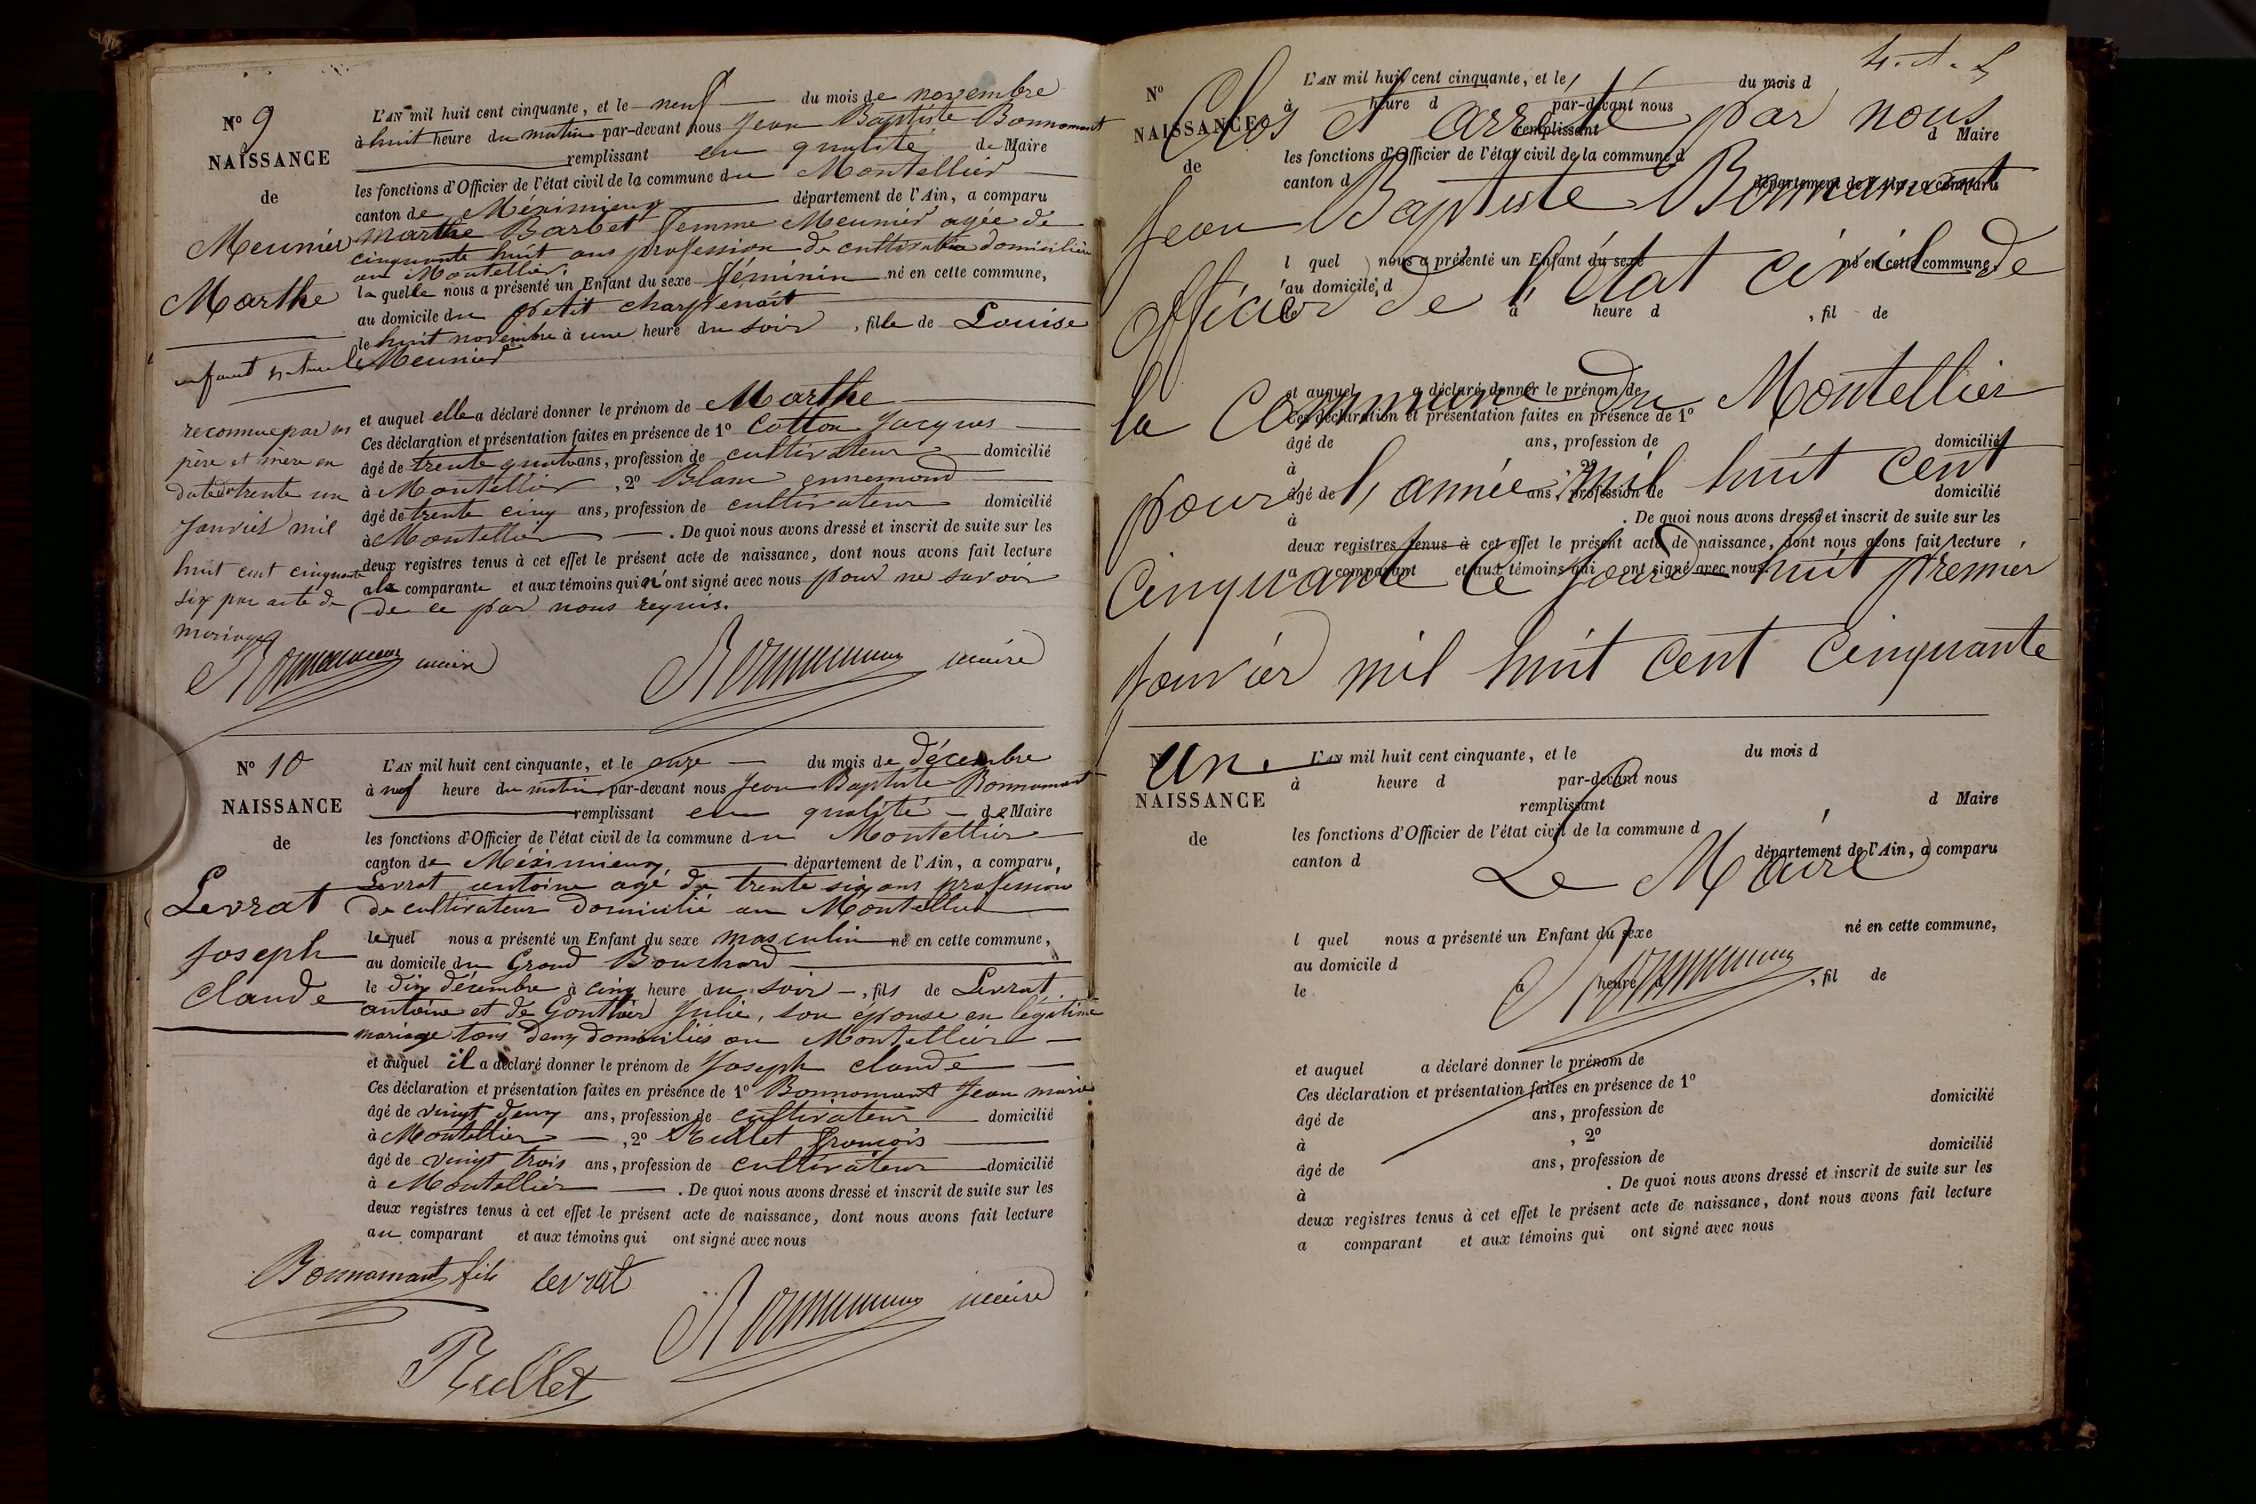 N° 9
NAISSANCE
de
Meunier
Marthe
enfant naturel
reconnue par ses
père et mère en
date du trente un
Janvier mil
huit cent cinquante
six par acte de
mariage
maire
L'AN mil huit cent cinquante, et le neuf du mois de novembre
à huit heure du matin par-devant nous Jean Baptiste Bonnamant
remplissant en qualité de Maire
les fonctions d'Officier de l'état civil de la commune du Montellier
canton de Méximieux département de l'Ain, a comparu
marthe Barbet femme Meunier agée de
cinquante huit ans profession de cultivatrice domiciliée
au Montellier.
laquelle nous a présenté un Enfant du sexe féminin né en cette commune,
au domicile du petit charpenait
le huit novembre à une heure du soir, fille de Louise
Meunier
et auquel elle a déclaré donner le prénom de Marthe
Ces déclaration et présentation faites en présence de 1° Cotton Jacques
âgé de trente quatre ans, profession de cultivateur domicilié
à Montellier, 2° Blanc ennemond
âgé de trente cinq ans, profession de cultivateur domicilié
à Montellier. De quoi nous avons dressé et inscrit de suite sur les
deux registres tenus à cet effet le présent acte de naissance, dont nous avons fait lecture
a la comparante et aux témoins qui n'ont signé avec nous pour ne savoir
de ce par nous requis.
maire
N° 10
NAISSANCE
de
Levrat
Joseph
claude
L'AN mil huit cent cinquante, et le onze du mois de décembre
à neuf heure du matin par-devant nous Jean Baptiste Bonnamant
remplissant en qualité de Maire
les fonctions d'Officier de l'état civil de la commune du Montellier
canton de Méximieux département de l'Ain, a comparu
Levrat antoine agé de trente six ans profession
de cultivateur domicilié au Montellier
lequel nous a présenté un Enfant du sexe masculin né en cette commune,
au domicile du Grand Bouchard
le dix décembre à cinq heure du soir, fils de Levrat
antoine et de Gonthier Julie, son épouse en légitime
mariage tous deux domiciliés au Montellier
et auquel il a déclaré donner le prénom de Joseph claude
Ces déclaration et présentation faites en présence de 1° Bonnamant Jean marie
âgé de vingt deux ans, profession de cultivateur domicilié
à Montellier, 2° Rullet françois
âgé de vingt trois ans, profession de cultivateur domicilié
à Montellier. De quoi nous avons dressé et inscrit de suite sur les
deux registres tenus à cet effet le présent acte de naissance, dont nous avons fait lecture
au comparant et aux témoins qui ont signé avec nous
Bonnamant fils levrat
maire
Rullet
N°
NAISSANCE
de
L'AN mil huit cent cinquante, et le du mois d
à heure d par-devant nous
remplissant d Maire
les fonctions d'Officier de l'état civil de la commune d
canton d département de l'Ain, a comparu
l quel nous a présenté un Enfant du sexe né en cette commune,
au domicile d
le à heure d, fil de
et auquel a déclaré donner le prénom de
Ces déclaration et présentation faites en présence de 1°
âgé de ans, profession de domicilié
à, 2°
âgé de ans, profession de domicilié
à. De quoi nous avons dressé et inscrit de suite sur les
deux registres tenus à cet effet le présent acte de naissance, dont nous avons fait lecture
a comparant et aux témoins qui ont signé avec nous
Clos et arrêté par nous
Jean Baptiste Bonnamant
officier de l'état civil de
la Commune du Montellier
pour l'année mil huit cent
Cinquante Ce jourd'huit premier
Janvier mil huit cent cinquante
un.
Le Maire
N°
NAISSANCE
de
L'AN mil huit cent cinquante, et le du mois d
à heure d par-devant nous
remplissant d Maire
les fonctions d'Officier de l'état civil de la commune d
canton d département de l'Ain, a comparu
l quel nous a présenté un Enfant du sexe né en cette commune,
au domicile d
le à heure d, fil de
et auquel a déclaré donner le prénom de
Ces déclaration et présentation faites en présence de 1°
âgé de ans, profession de domicilié
à, 2°
âgé de ans, profession de domicilié
à. De quoi nous avons dressé et inscrit de suite sur les
deux registres tenus à cet effet le présent acte de naissance, dont nous avons fait lecture
a comparant et aux témoins qui ont signé avec nous